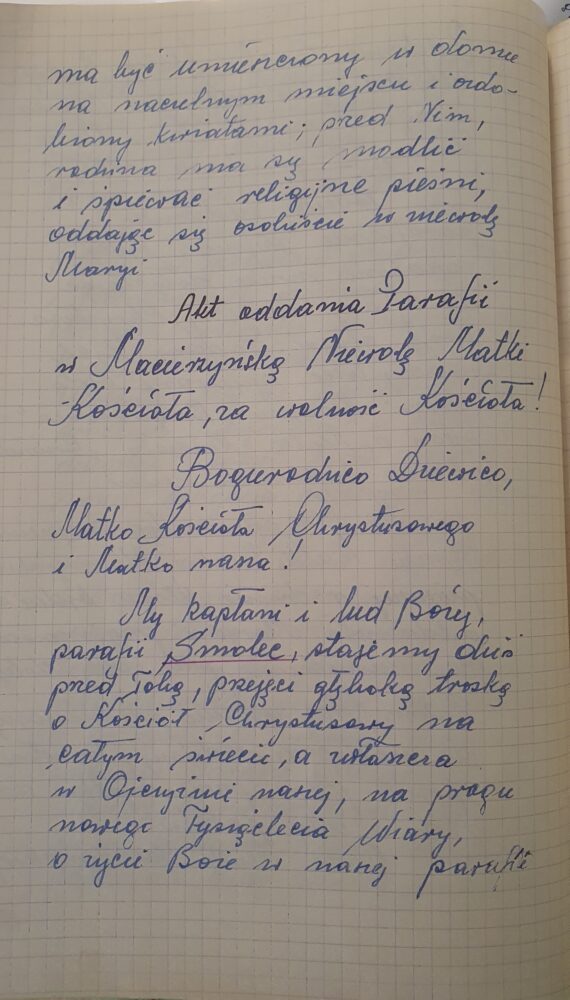 ma być umieszczony w domu
na naczelnym miejscu i ozdo-
biony kwiatami; przed Nim,
rodzina ma się modlić
i śpiewać religijne pieśni,
oddając się osobiście w niewolę
Maryi
Akt oddania Parafii
w Macierzyńską Niewolę Matki
Kościoła, za wolność Kościoła!
Bogurodzico Dziewico,
Matko Kościoła Chrystusowego
i Matko nasza!
My kapłani i lud Boży,
parafii Smolec, stajemy dziś
przed Tobą, przejęci głęboką troską
o Kościół Chrystusowy na
całym świecie, a zwłaszcza
w Ojczyźnie naszej, na progu
nowego Tysiąclecia Wiary,
o życie Boże w naszej parafii